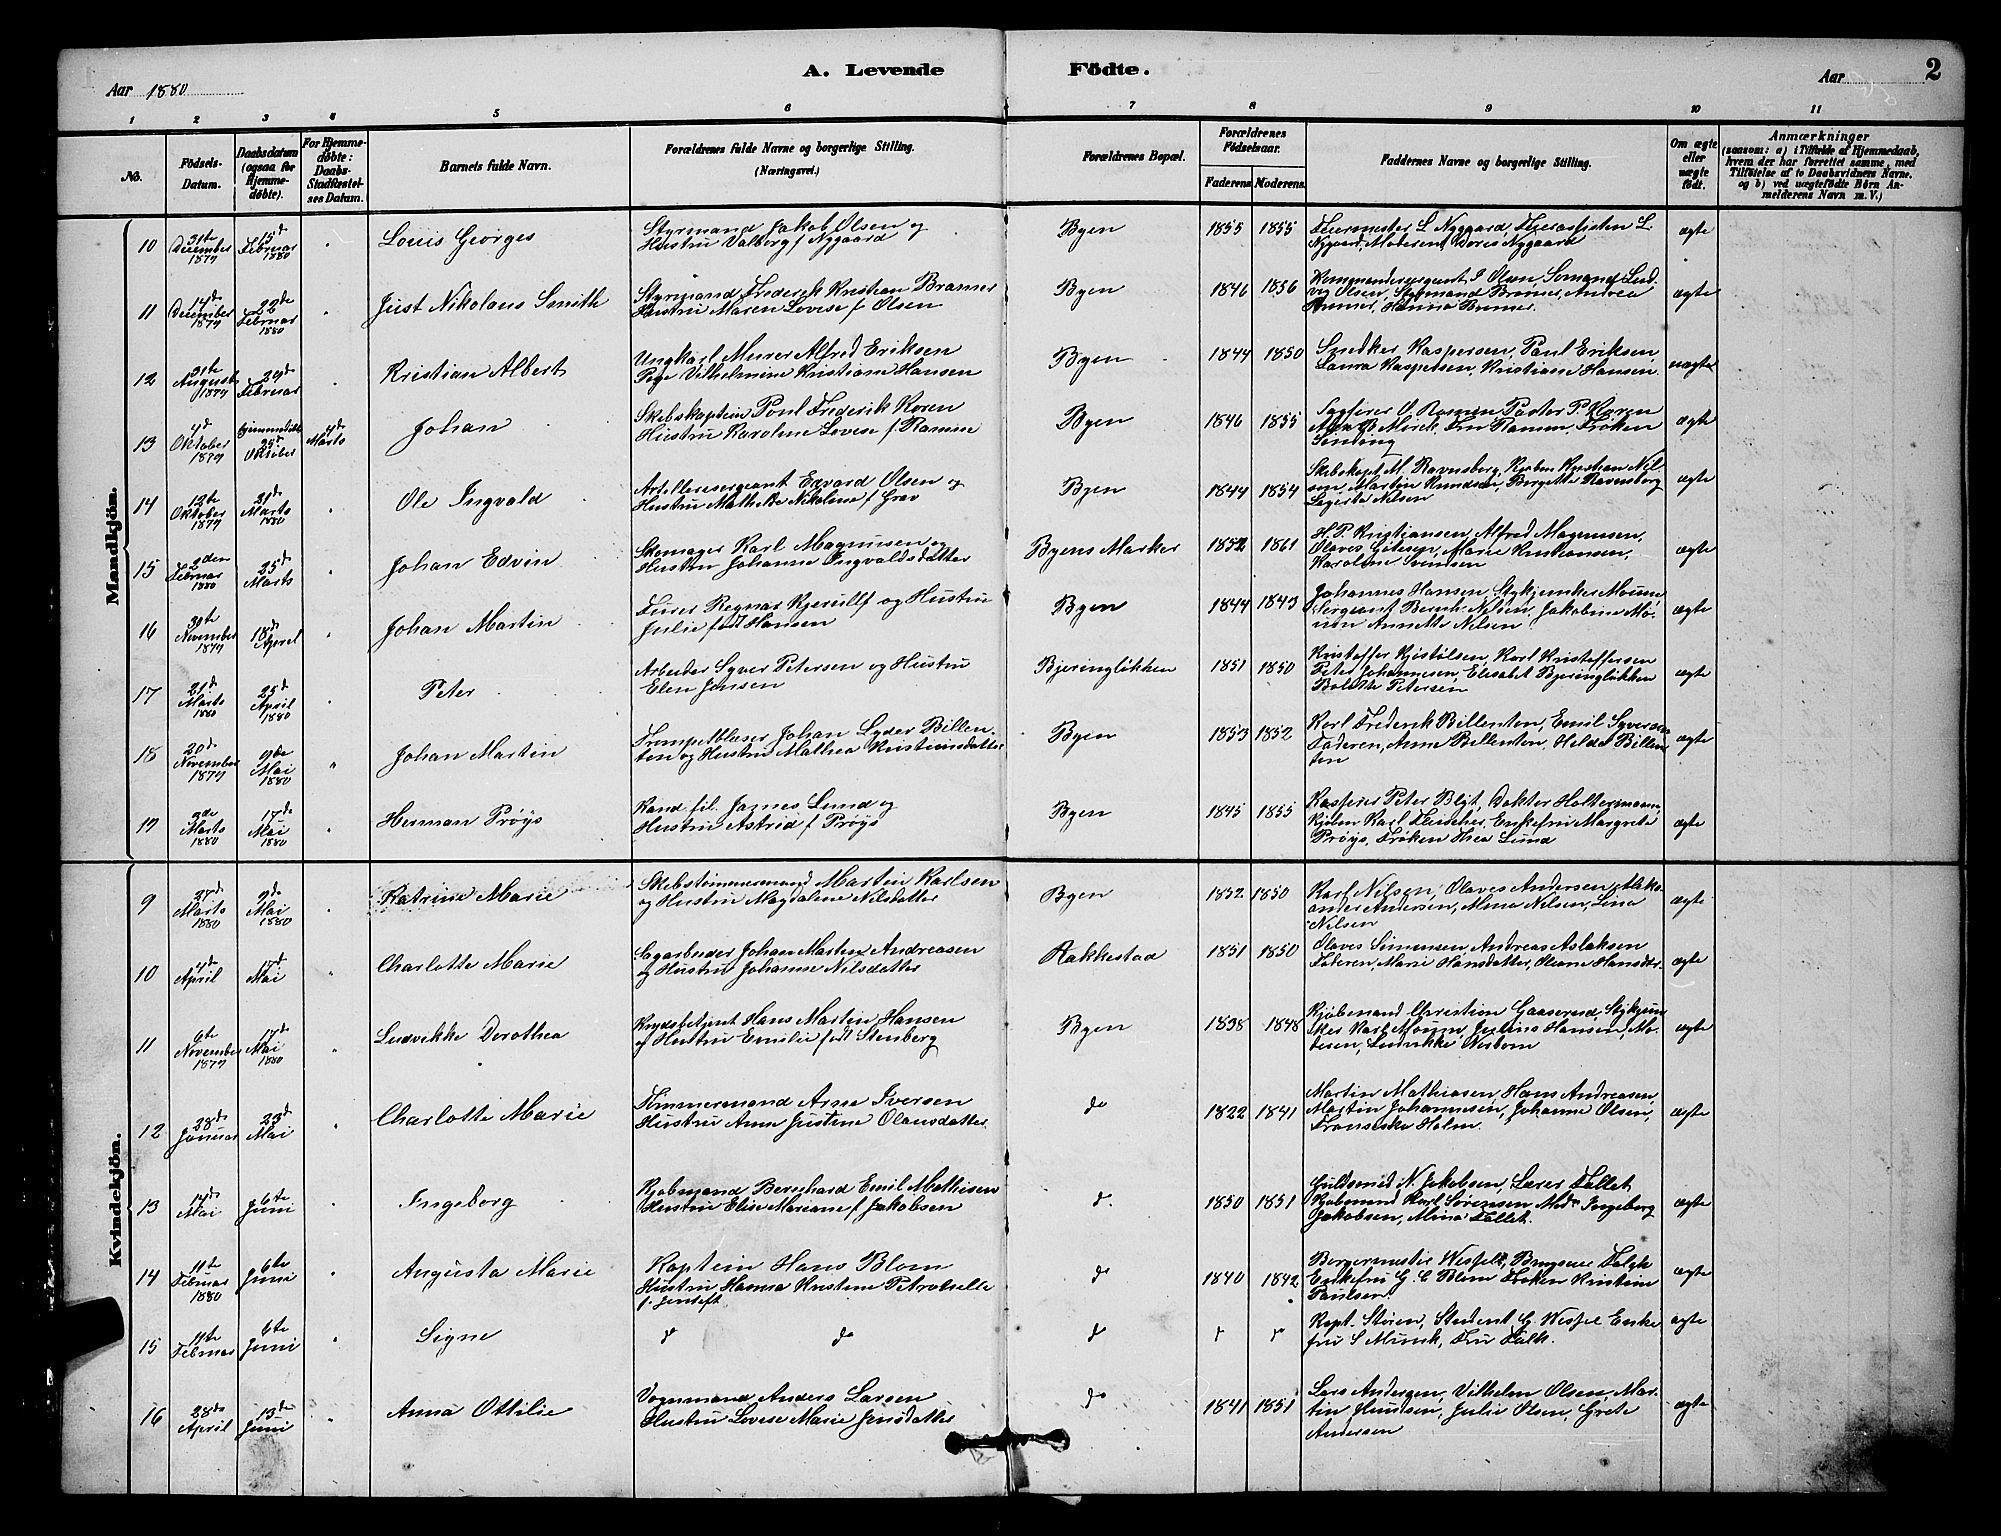 A. Levende Födte.
2
Aar 1880
Aar
1 2 3 4 5 6 7 8 9 10 11
No.
Födsels-Datum.
Daabsdatum (ogsaa for Hjemmedöbte).
For Hjemmedöbte: Daabs-Stadfæstelses Datum.
Barnets fulde Navn.
Forældrenes fulde Navne og borgerlige Stilling. (Næringsvei.)
Forældrenes Bopæl.
Forældrenes Födselsaar.
Faderens Moderens.
Faddernes Navne og borgerlige Stilling.
Om ægte eller uægte födt.
Anmærkninger (saasom: a) i Tilfælde af Hjemmedaab, hvem der har forrettet samme, med Tilföielse af to Daabsvidners Navne. og b) ved uægtefödte Börn Anmelderens Navn m. V.)
Mandkjön.
10 31te December 1879 15de Februar 1880 Louis Georges Styrmand Jakob Olsen og
Hustru Valborg f Nygaard Byen 1855 1855 Feiermester L Nygaard,
Nygaard, Moderen, Doris Nygaard ægte
11 14de December 1879 22de Februar 1880 Just Nikolaus Smith Styrmand Frederik Kristian Brammer
Hustru Maren Lovise f Olsen Byen 1846 1856
ægte
12 31te August 1879 29de Februar Kristian Albert Ungkarl Murer Alfred Eriksen
Pige Vilhelmine Kristiane Hansen Byen 1844 1850 Snedker Kaspersen, Paul Eriksen,
Laura Kaspersen, Kristiane Hansen uægte
13 4de Oktober 1879 Hjemmedöbt 25de Oktober 4de Marts Johan Skibskaptein Poul Frederik Koren
Hustru Karoline Lovise f Ramm Byen 1846 1855
ægte
14 12te Oktober 1879 21de Marts 1880 Ole Ingvald Artillerisergeant Edvard Olsen og
Hustru Mathilde Nikoline f Grav Byen 1844 1854 Skibskapt. M. Ravnsborg,
Martin Knudsen, Borgette Ravensborg
Nilsen ægte
15 2den Februar 1880 25de Marts Johan Edvin Skomager Karl Magnusen og
Hustru Johanne Ingvaldsdatter Byens Marker 1852 1861 H. P. Kristiansen, Alfred Magnussen,
Marie Kristiansen,
Karoline Svendsen ægte
16 30te November 1879 18de April Johan Martin Furer Regnar Kjerulff og Hustru
Julie født Hansen Byen 1844 1843 Johannes Hansen, Stykjunker
Sergeant Bernh. Nilsen, Jakobine
Annette Nilsen ægte
17 21de Marts 1880 25de April 1880 Peter Arbeider Syver Petersen og Hustru
Elen Jensen Bjeringløkken 1851 1850 Kristoffer Kjistølsen, Karl Kristoffersen
Peter Johannesen, Elisabet Bjeringløkken
Bolette Petersen ægte
18 20de November 1879 9de Mai 1880 Johan Martin Trompetblæser Johan Lyder Billen-
ton og Hustru Mathea Kristiansdatter Byen 1853 1852 Karl Frederik Billenton, Emil Syversen
Faderen, Anne Billenton, Helda Billen
ton ægte
19 3de Marts 1880 17de Mai 1880 Herman Prøys Kand. fil. James Lund og
Hustru Astrid f Prøys Byen 1845 1855 Kasserer Peter Blyt, Doktor Holtermann,
Karl Fleischer, Enkefru Margrete
Prøys, Frøken Thea Lund ægte
Kvindekjön.
9 27de Marts 1880 9de Mai 1880 Katrine Marie Skibstømmermand Martin Karlsen
og Hustru Magdalene Nilsdatter Byen 1852 1850 Karl Nilsen, Olaves Andersen, Aleks-
ander Andersen, Mina Nilsen, Lina
Nilsen ægte
10 4de April 17de Mai Charlotte Marie Sagarbeider Johan Martin Andreasen
og Hustru Johanne Nilsdatter Rakkestad 1851 1850 Olaves Simensen, Andreas Aslaksen
Faderen, Marie Hansdatter, Oleane Hansdtr. ægte
11 6te November 1879 17de Mai 1880 Ludvikke Dorothea Krydsbetjent Hans Martin Hansen
og Hustru Emilie født Stenberg Byen 1838 1848 Kjøbmand Christian Gaaserud, Stykjun
ker Karl Hansen,
Ludvikke Nesbom ægte
12 28de Januar 23de Mai Charlotte Marie Tømmermand Arne Iversen
Hustru Anne Justine Olausdatter do 1822 1841 Martin Mathiasen, Hans Andreasen,
Martin Johannesen, Johanne Olsen,
Fransiska Holm. ægte
13 17de Mai 6te Juni Ingeborg Kjøbmand Bernhard Emil Mathisen
Hustru Elise Mariane f Jakobsen do 1850 1851 Guldsmed N. Jakobsen, Lærer Tallet,
Kjøbmand Karl Sørensen Mad. Ingeborg
Jakobsen, Mina Tallet. ægte
14 11te Februar 1880 6te Juni Augusta Marie Kaptein Hans Blom
Hustru Hanna Kristine Petronelle
f. Jensoft do 1840 1842 Borgermester Wesfelt,
Enkefru G. C Blom Frøken Kristine
Paulsen. ægte
15 11te Februar 6te Juni Signe do do do do do Kapt. Steen, Student G. Wesfel Enke
fru S Munk, Fru Falk. ægte
16 28de April 13de Juni Anna Ottilie Vognmand Anders Larsen
Hustru Lovise Marie Jensdatter do 1841 1851 Lars Andersen, Vilhelm Olsen, Mar-
tin Knudsen, Julie Olsen, Grete
Andersen ægte